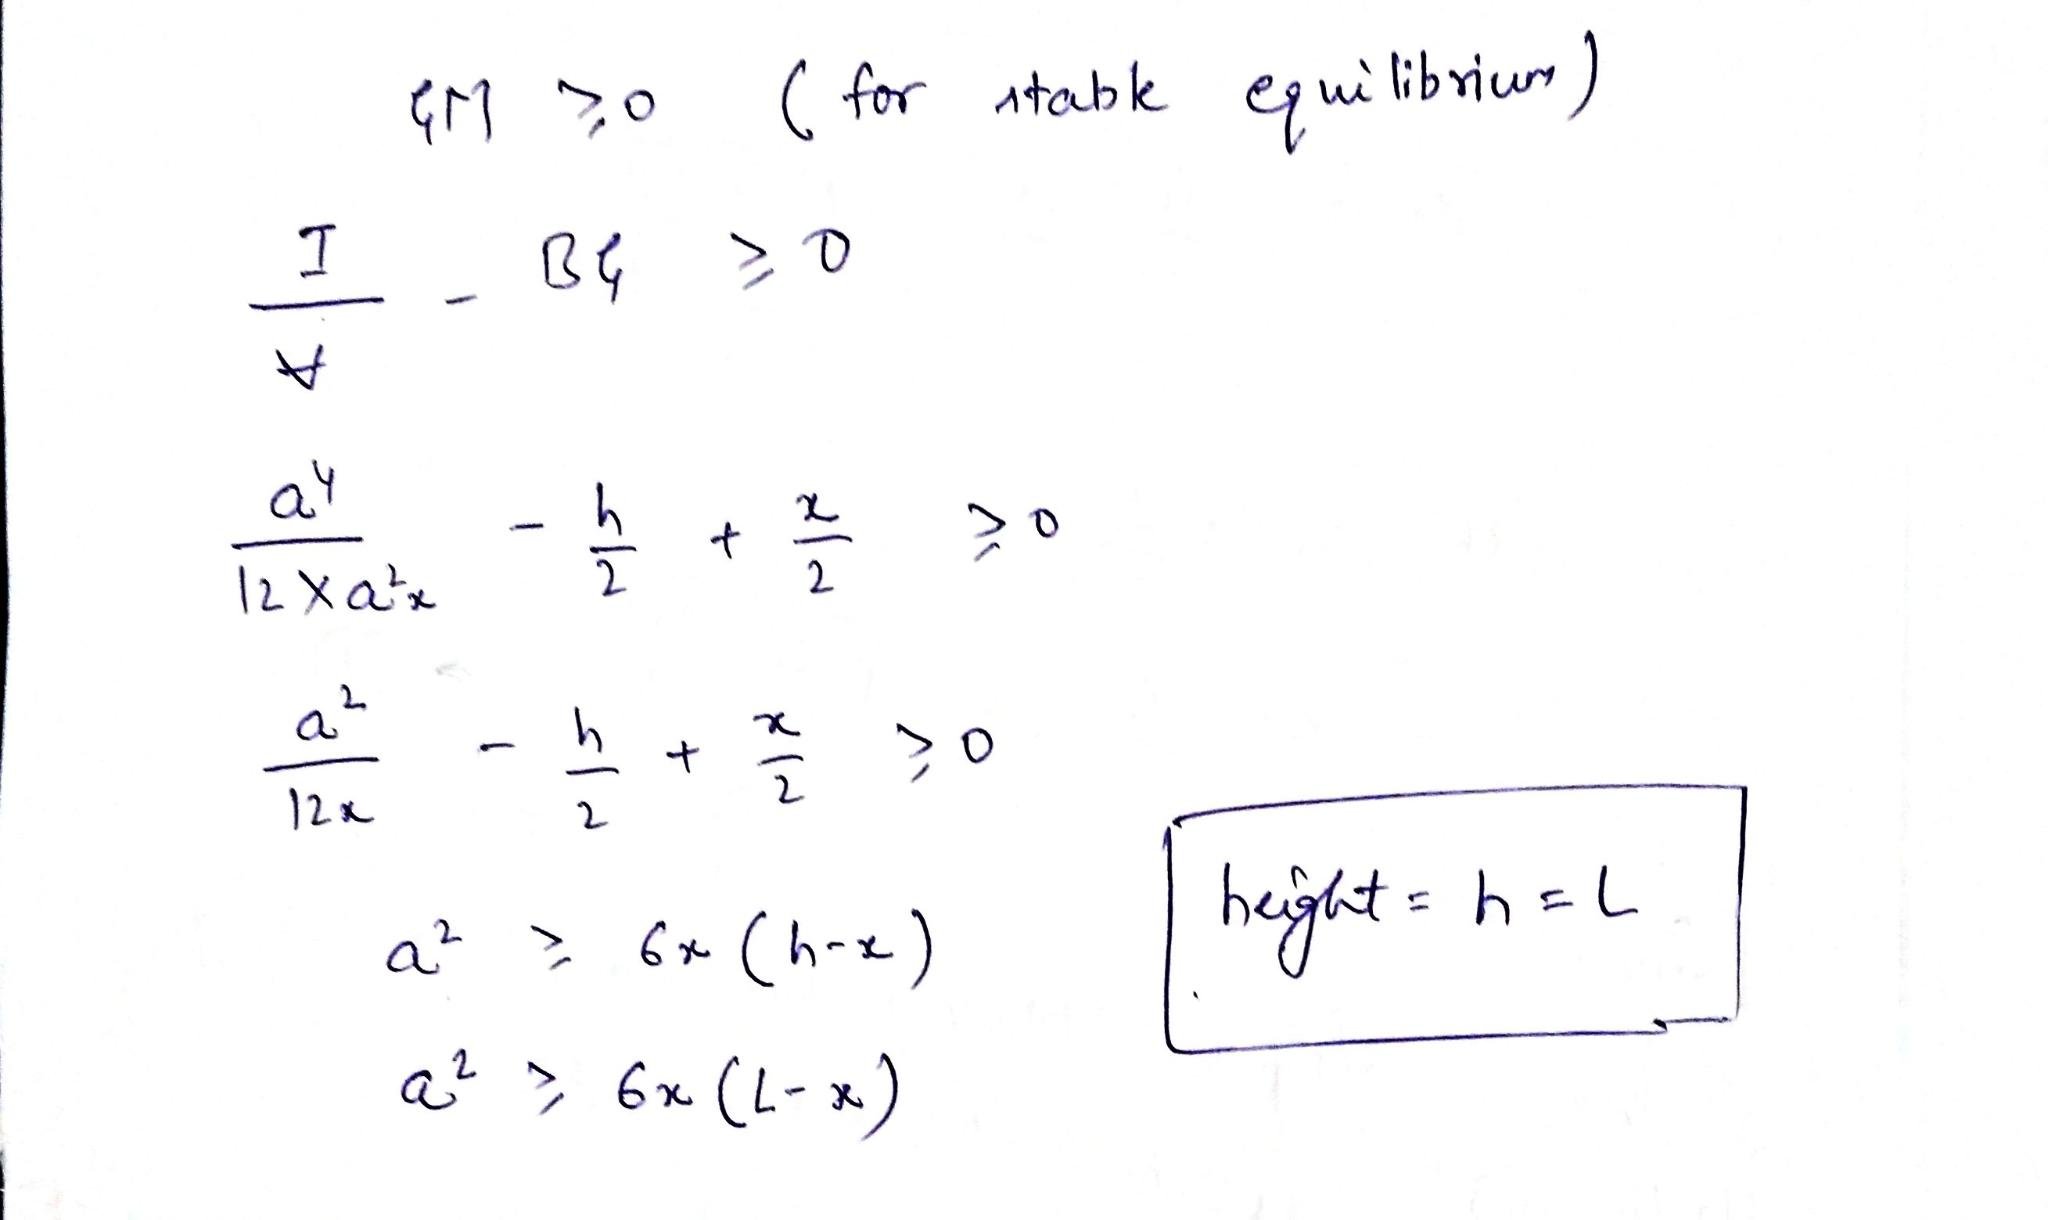 GM ≥ 0 (for stable equilibrium)
I/V̶ - BG ≥ 0
a⁴/(12 × a²x) - h/2 + x/2 ≥ 0
a²/(12x) - h/2 + x/2 ≥ 0
a² ≥ 6x (h-x)
height = h = L
a² ≥ 6x (L-x)